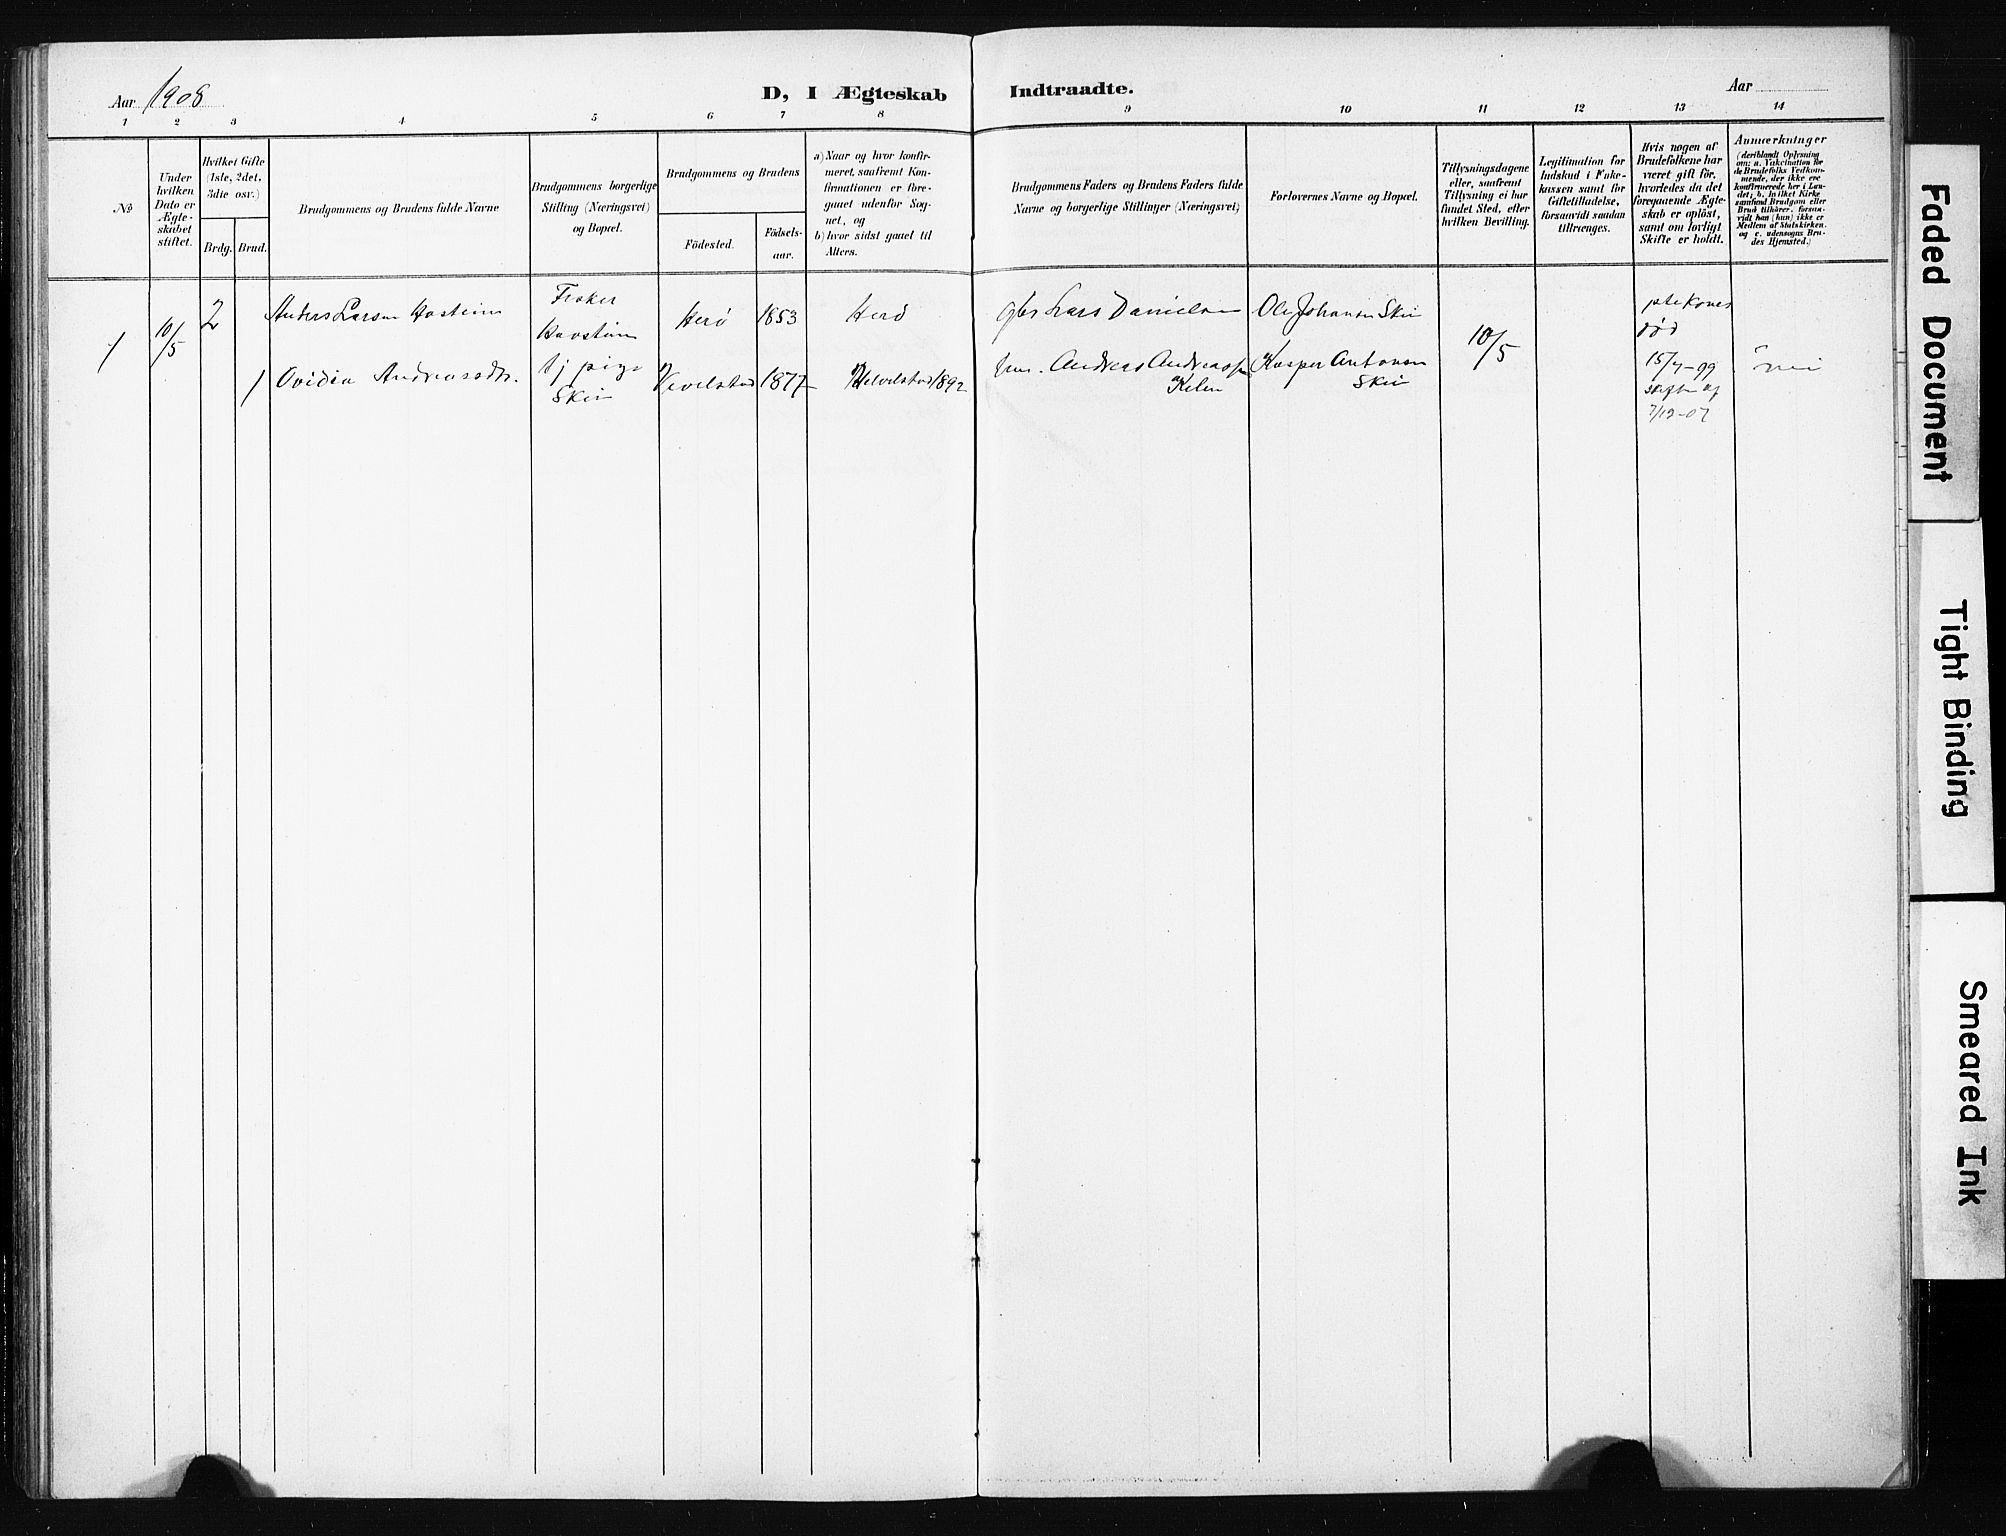 Aar 1908
D, I Ægteskab Indtraadte.
Aar
1 2 3 4 5 6 7 8 9 10 11 12 13 14
No
Under hvilken Dato er Ægte-skabet stiftet.
Hvilket Gifte (1ste, 2det, 3die osv.)
Brdg. Brud.
Brudgommens og Brudens fulde Navne
Brudgommens borgerlige Stilling (Næringsvei) og Bopæl.
Brudgommens og Brudens
Födested.
Födsels-aar.
a) Naar og hvor konfir-meret, saafremt Kon-firmationen er fore-gaaet udenfor Sog-net, og
b) hvor sidst gaaet til Alters.
Brudgommens Faders og Brudens Faders fulde Navne og borgerlige Stillinger (Næringsvei)
Forlovernes Navne og Bopæl.
Tillysningsdagene eller, saafremt Tillysning ei har fundet Sted, efter hvilken Bevilling.
Legitimation for Indskud i Enke-kassen samt for Giftetilladelse, forsaavidt saadan tiltrænges.
Hvis nogen af Brudefolkene har været gift för, hvorledes da det foregaaende Ægte-skab er oplöst, samt om lovligt Skifte er holdt.
Anmærkninger (deriblandt Oplysning om: a. Vakcination for de Brudefolks Vedkom-mende, der ikke ere konfirmerede her i Lan-det; b. hvilket Kirke-samfund Brudgom eller Brud tilhører, forsaa-vidt han (hun) ikke er Medlem af Statskirken, og c. udensogns Bru-des Hjemsted.)
1
10/5
2
Anders Larsen Havsteim
Fisker
Havsteim
Herö
1853
Herö
Lars Danielsen
Ole Johansen Skei
10/5
død
1
Ovidia Andreasdtr.
tj pige
Skei
Vevelstad
1877
Vevelstad 1892
Andreas Andreasen
Kilen
Kasper Antonsen
Skei
15/7-99
7/12-07
nei
Faded Document
Tight Binding
Smeared Ink